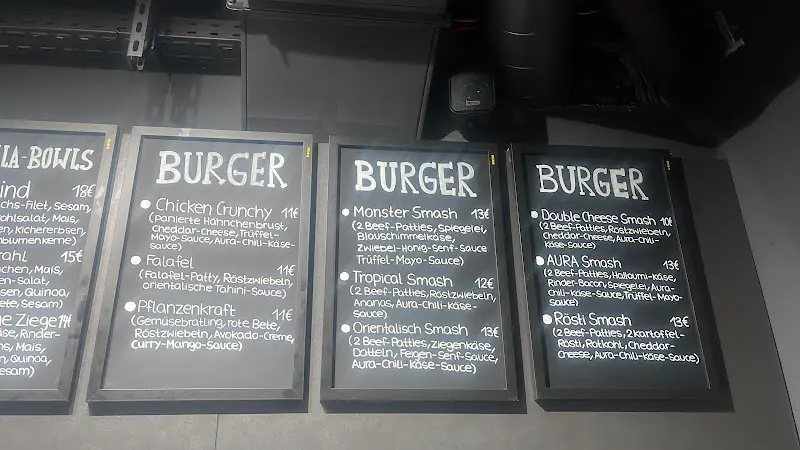 LA-BOWLS
ind 18€
chs-Filet, Sesam,
ohlsalat, Mais,
en, Kichererbsen,
blumenkerne)
rahl 15€
ochen, Mais,
en-Salat,
sen, Quinoa,
ete, Sesam)
ne Ziege 14€
äse, Rinder-
ns, Mais,
en, Quinoa,
esam)
BURGER
Chicken Crunchy 11€
(panierte Hähnchenbrust,
Cheddar-Cheese, Trüffel-
Mayo-Sauce, Aura-Chili-Käse-
Sauce)
Falafel 11€
(Falafel-Patty, Röstzwiebeln,
orientalische Tahini-Sauce)
Pflanzenkraft 11€
(Gemüsebratling, rote Bete,
Röstzwiebeln, Avokado-Creme,
Curry-Mango-Sauce)
BURGER
Monster Smash 13€
(2 Beef-Patties, Spiegelei,
Blauschimmelkäse,
Zwiebel-Honig-Senf-Sauce
Trüffel-Mayo-Sauce)
Tropical Smash 12€
(2 Beef-Patties, Röstzwiebeln,
Ananas, Aura-Chili-Käse-
Sauce)
Orientalisch Smash 13€
(2 Beef-Patties, Ziegenkäse,
Datteln, Feigen-Senf-Sauce,
Aura-Chili-Käse-Sauce)
BURGER
Double Cheese Smash 10€
(2 Beef-Patties, Röstzwiebeln,
Cheddar-Cheese, Aura-Chili-
Käse-Sauce)
AURA Smash 13€
(2 Beef-Patties, Halloumi-Käse,
Rinder-Bacon, Spiegelei, Aura-
Chili-Käse-Sauce, Trüffel-Mayo-
Sauce)
Rösti Smash 13€
(2 Beef-Patties, 2 Kartoffel-
Rösti, Rotkohl, Cheddar-
Cheese, Aura-Chili-Käse-Sauce)